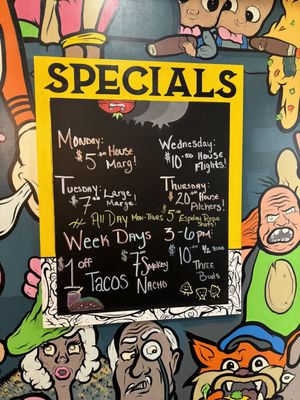 SPECIALS
Monday: Wednesday:
$5.00 House Marg! $10.00 House Flights!
Tuesday: Thursday:
$7.00 Large Marg! $20.00 House Pitchers!
* All Day Mon-Thurs $5.00 Repo Shots!
Week Days 3-6pm
$1 off Tacos
$7 Smokey Nacho
$10.00 Three Buds